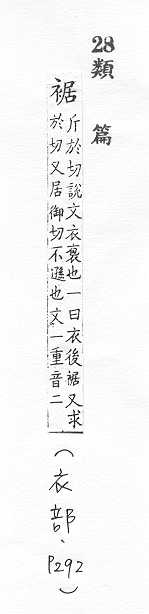 28類篇
裾斤於切說文衣裹也一曰衣後裾又求
於切又居御切不遜也文一重音二
(衣部、P292)